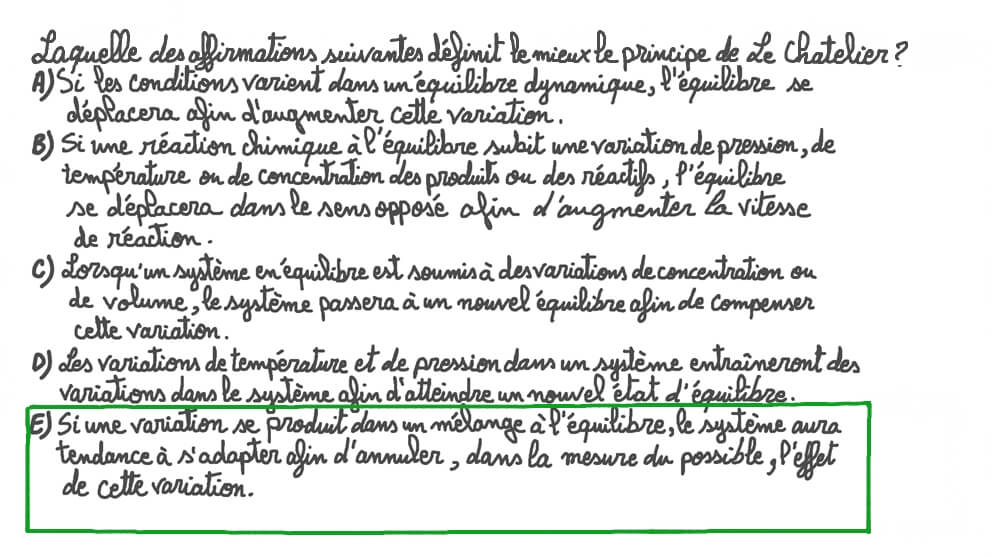 Laquelle des affirmations suivantes définit le mieux le principe de Le Chatelier ?
A) Si les conditions varient dans un équilibre dynamique, l'équilibre se
déplacera afin d'augmenter cette variation.
B) Si une réaction chimique à l'équilibre subit une variation de pression, de
température ou de concentration des produits ou des réactifs, l'équilibre
se déplacera dans le sens opposé afin d'augmenter la vitesse
de réaction.
C) Lorsqu'un système en équilibre est soumis à des variations de concentration ou
de volume, le système passera à un nouvel équilibre afin de compenser
cette variation.
D) Les variations de température et de pression dans un système entraîneront des
variations dans le système afin d'atteindre un nouvel état d'équilibre.
E) Si une variation se produit dans un mélange à l'équilibre, le système aura
tendance à s'adapter afin d'annuler, dans la mesure du possible, l'effet
de cette variation.